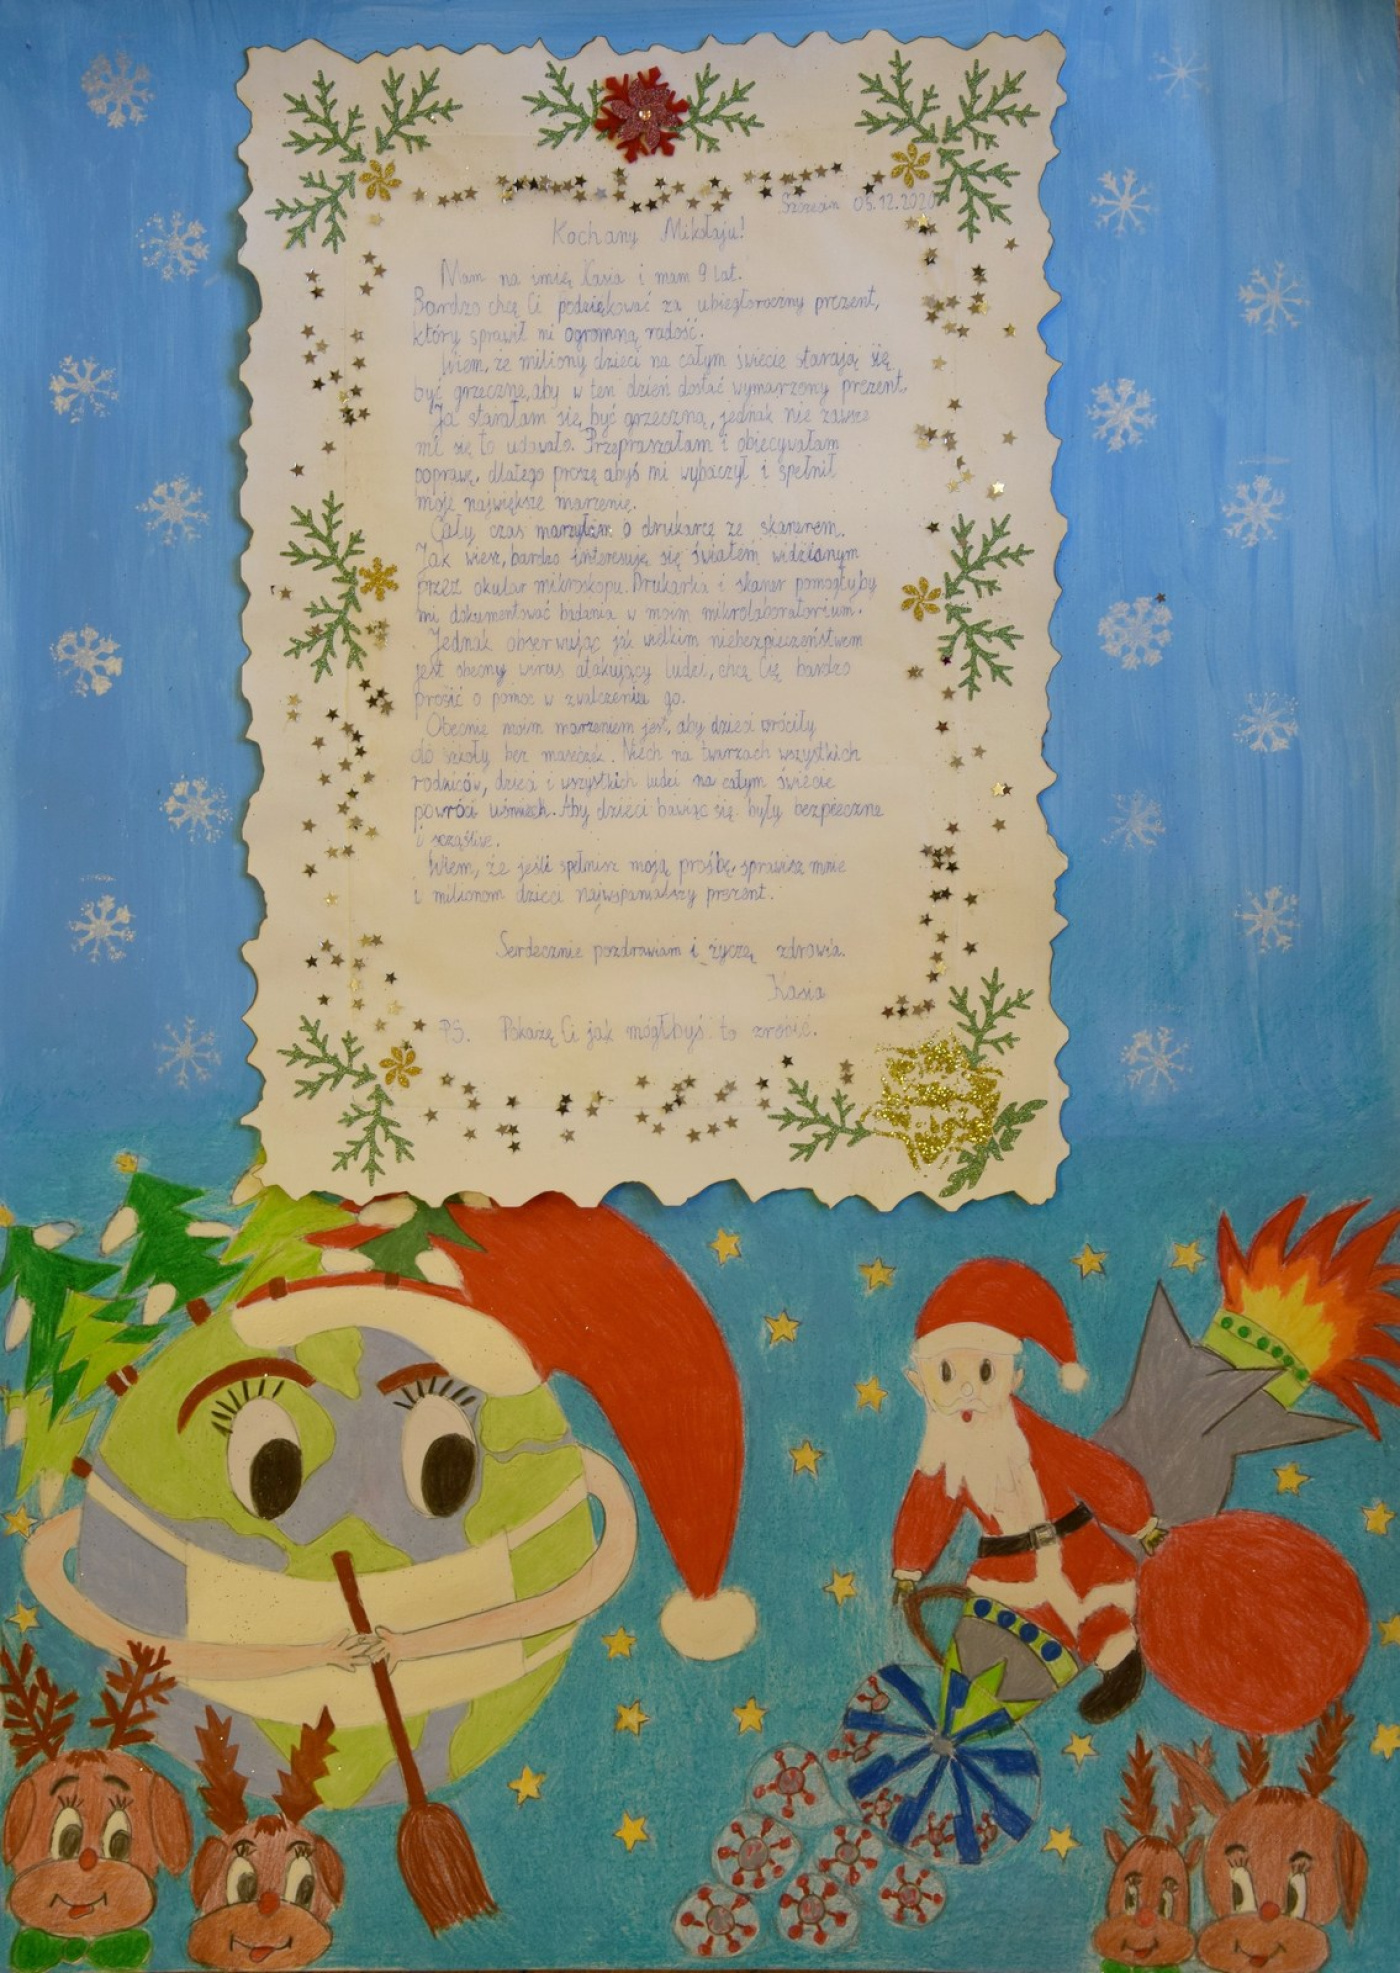 Szczecin 05.12.2020
Kochany Mikołaju!
Mam na imię Kasia i mam 9 lat.
Bardzo chcę Ci podziękować za ubiegłoroczny prezent,
który sprawił mi ogromną radość.
Wiem, że miliony dzieci na całym świecie starają się
być grzeczne, aby w ten dzień dostać wymarzony prezent.
Ja starałam się być grzeczną, jednak nie zawsze
mi się to udawało. Przepraszałam i obiecywałam
poprawę, dlatego proszę abyś mi wybaczył i spełnił
moje największe marzenie.
Cały czas marzyłam o drukarce ze skanerem.
Jak wiesz, bardzo interesuję się światem widzianym
przez okular mikroskopu. Drukarka i skaner pomogłyby
mi dokumentować badania w moim mikrolaboratorium.
Jednak obserwując jak wielkim niebezpieczeństwem
jest obecny wirus atakujący ludzi, chcę Cię bardzo
prosić o pomoc w zwalczeniu go.
Obecnie moim marzeniem jest, aby dzieci wróciły
do szkoły bez maseczek. Niech na twarzach wszystkich
rodziców, dzieci i wszystkich ludzi na całym świecie
powróci uśmiech. Aby dzieci bawiąc się były bezpieczne
i szczęśliwe.
Wiem, że jeśli spełnisz moją prośbę, sprawisz mnie
i milionom dzieci najwspanialszy prezent.
Serdecznie pozdrawiam i życzę zdrowia.
Kasia
PS. Pokażę Ci jak mógłbyś to zrobić.